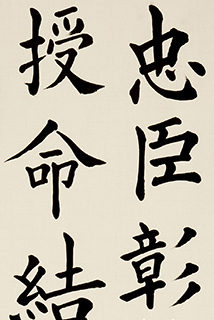 忠臣彰
授命結